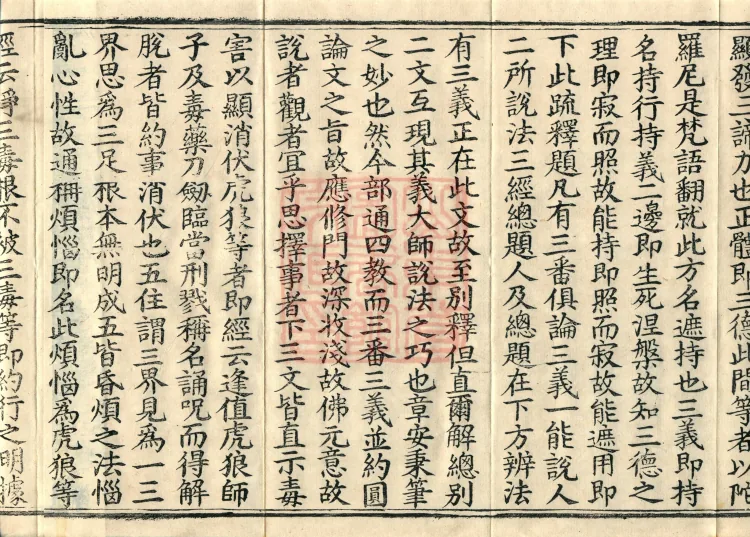 顯發三諦力也正體即三德此問等者以陀
羅尼是梵語翻就此方名遮持也三義即持
名持行持義二邊即生死涅槃故知三德之
理即寂而照故能持即照而寂故能遮用即
下此疏釋題凡有三番俱論三義一能說人
二所說法三經總題人及總題在下方辨法
有三義正在此文故至別釋但直爾解總別
二文互現其義大師說法之巧也章安秉筆
之妙也然今部通四教而三番三義並約圓
論文之旨故應修門故深收淺故佛元意故
說者觀者宜乎思擇事者下三文皆直示毒
害以顯消伏虎狼等者即經云逢值虎狼師
子及毒藥刀劒臨當刑戮稱名誦呪而得解
脫者皆約事消伏也五住謂三界見為一三
界思為三足根本無明成五皆昏煩之法惱
亂心性故通稱煩惱即名此煩惱為虎狼等
經云淨三毒根不被三毒等即約行之明據